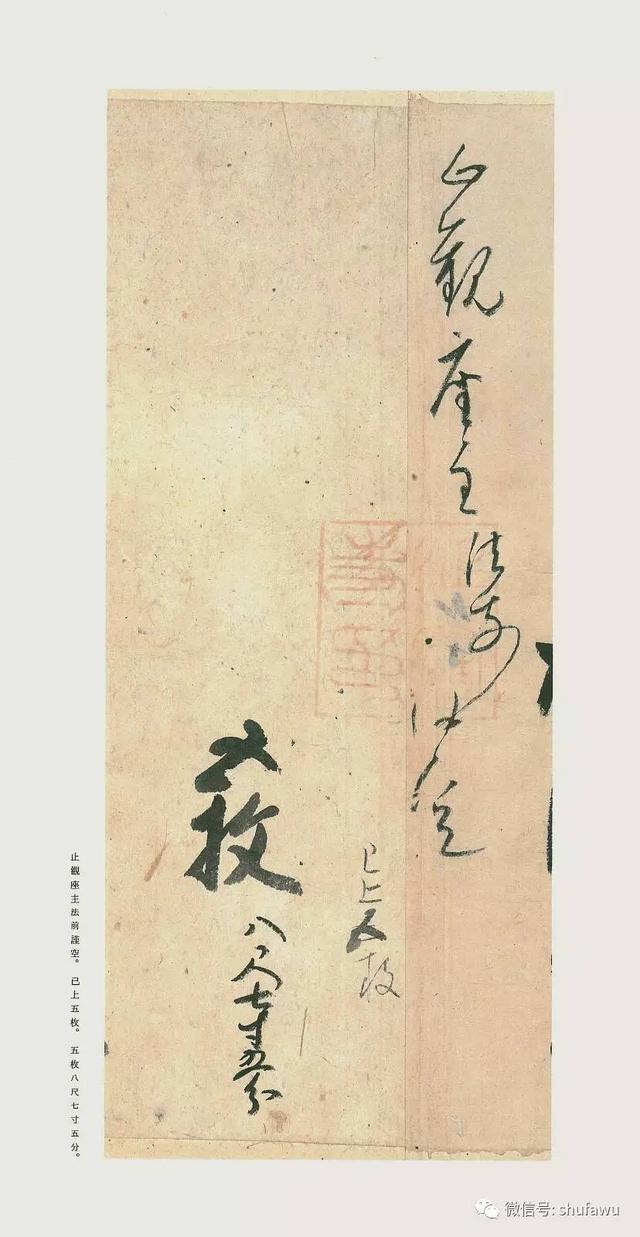 止觀座主法前謹空
已上五枚
五枚
八尺七寸五分
止觀座主法前謹空。已上五枚。五枚八尺七寸五分。
微信号: shufawu